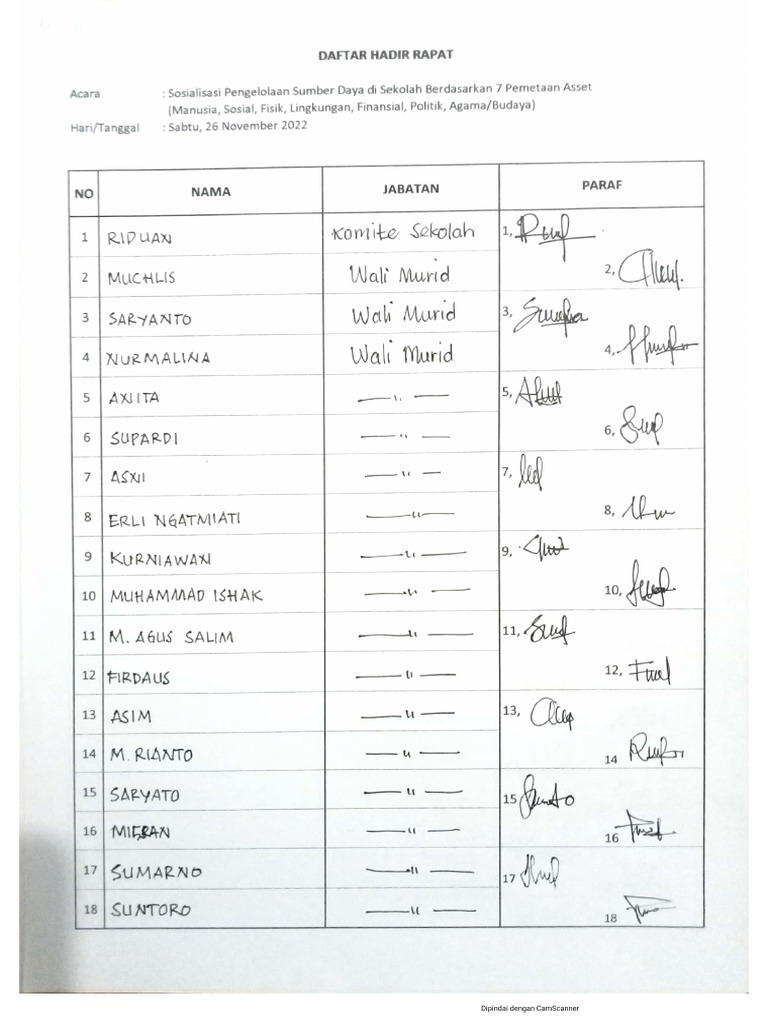 DAFTAR HADIR RAPAT
Acara : Sosialisasi Pengelolaan Sumber Daya di Sekolah Berdasarkan 7 Pemetaan Asset
(Manusia, Sosial, Fisik, Lingkungan, Finansial, Politik, Agama/Budaya)
Hari/Tanggal : Sabtu, 26 November 2022
NO NAMA JABATAN PARAF
1 RIDUAN Komite Sekolah 1,
2 MUCHLIS Wali Murid 2,
3 SARYANTO Wali Murid 3,
4 NURMALINA Wali Murid 4,
5 ANITA — " — 5,
6 SUPARDI — " — 6,
7 ASNI — " — 7,
8 ERLI NGATMIATI — " — 8,
9 KURNIAWAN — " — 9,
10 MUHAMMAD ISHAK — " — 10,
11 M. AGUS SALIM — " — 11,
12 FIRDAUS — " — 12,
13 ASIM — " — 13,
14 M. RIANTO — " — 14
15 SARYATO — " — 15
16 — " — 16
17 SUMARNO — " — 17
18 SUNTORO — " — 18
Dipindai dengan CamScanner